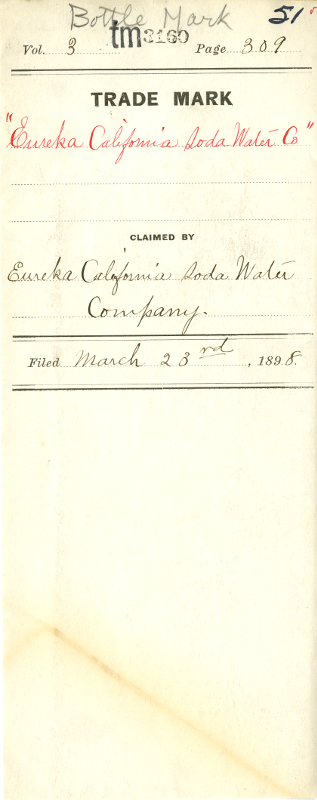 Bottle Mark 51
Vol. 3 tm 3160 Page 309
TRADE MARK
"Eureka California Soda Water Co"
CLAIMED BY
Eureka California Soda Water
Company.
Filed March 23rd, 1898.